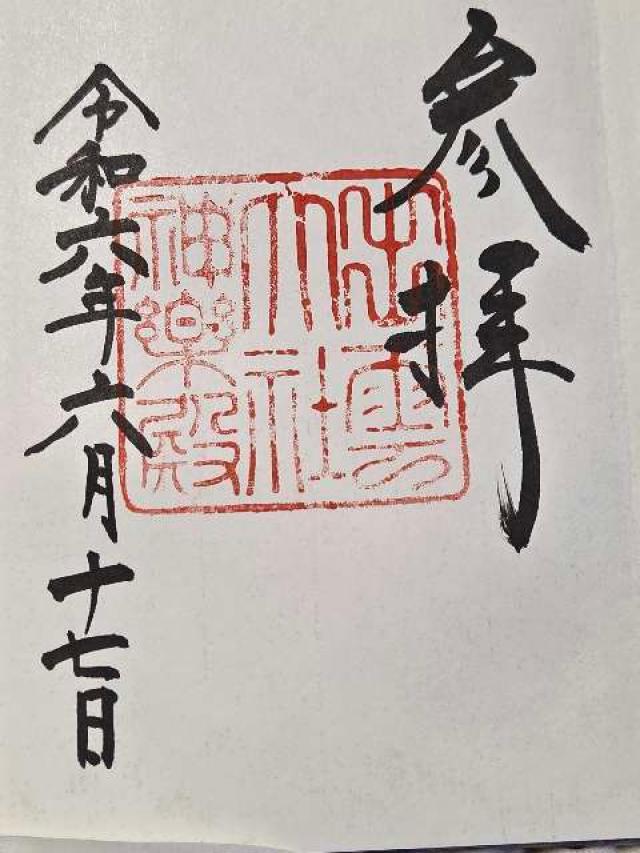 参拝
出雲
大社
神楽殿
令和六年六月十七日